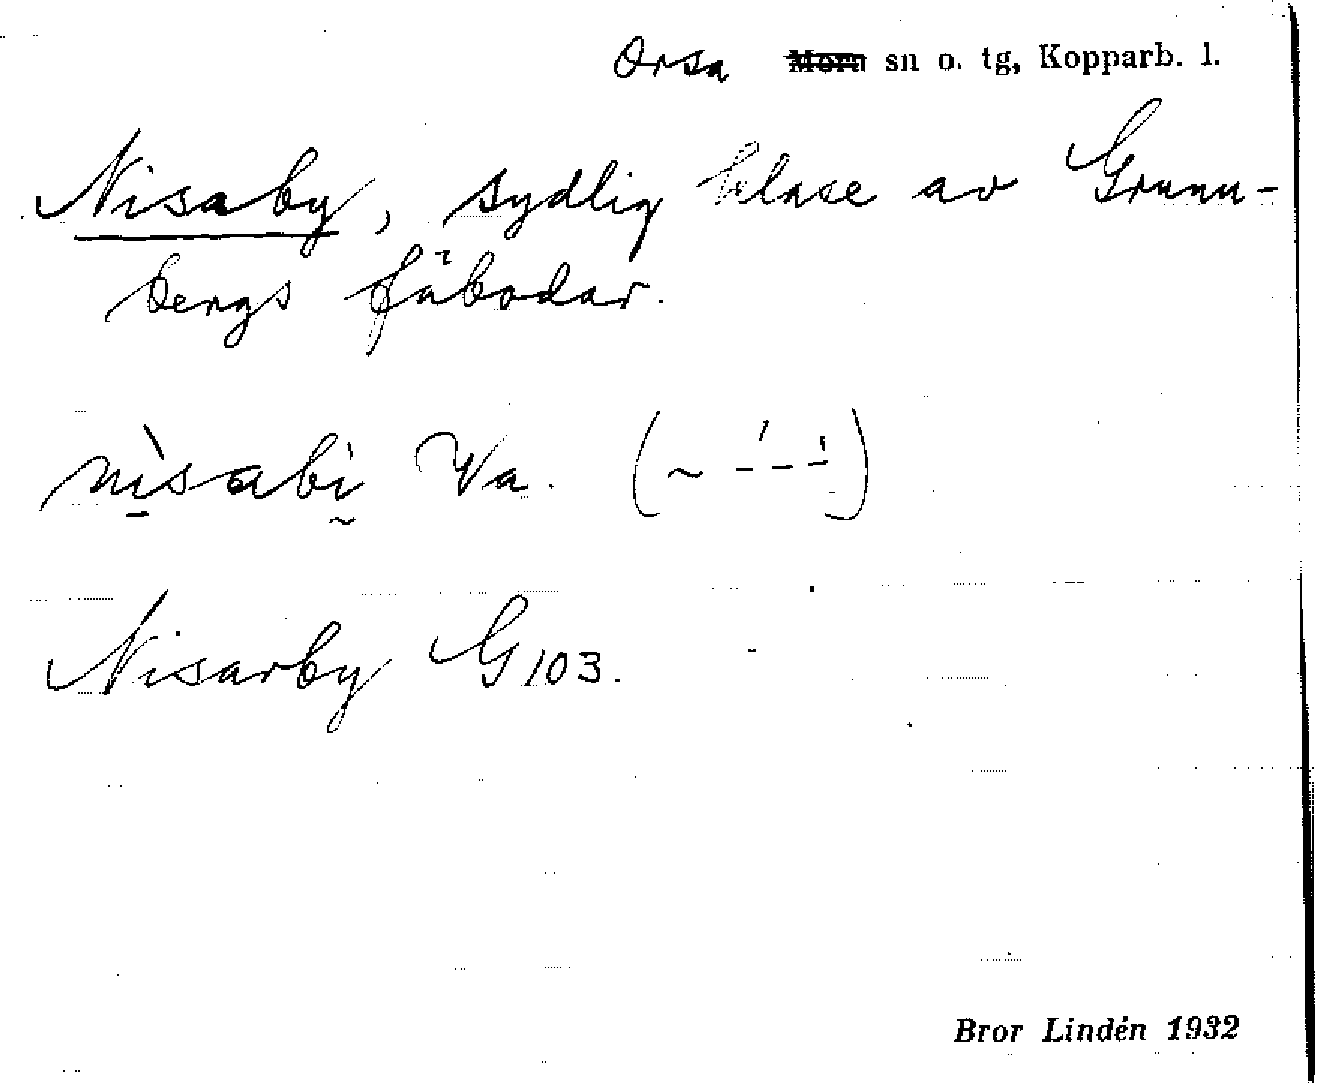 Orsa Mora sn o. tg, Kopparb. l.
Nisaby, sydlig klase av Grunu-
bergs fäbodar.
nìsabì Va. (~ - - -)
Nisarby G 103.
Bror Lindén 1932